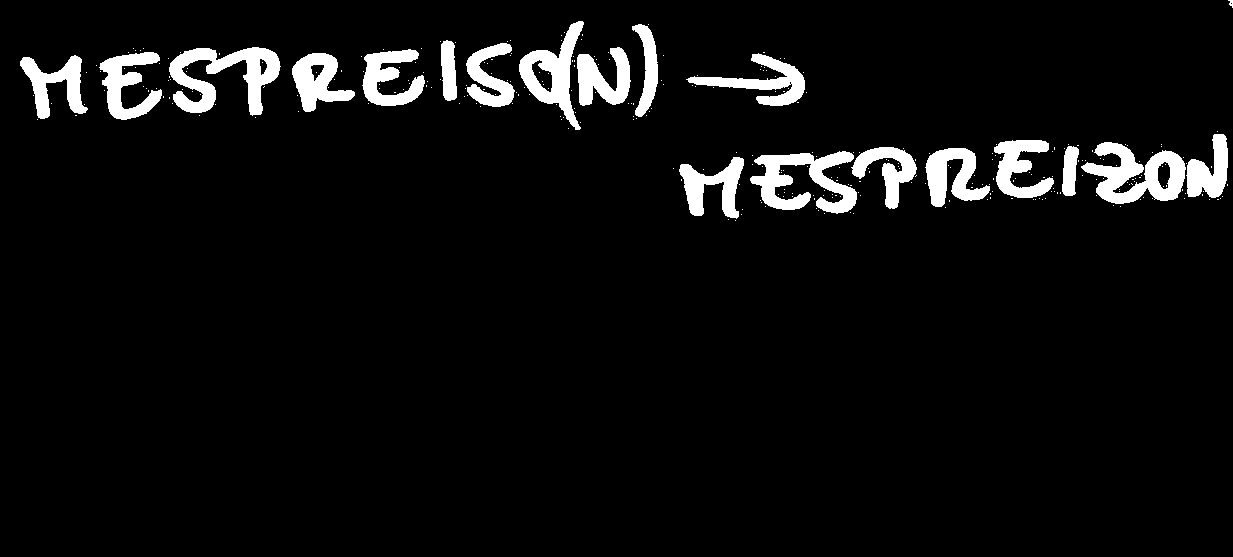 MESPREISO(N) →
MESPREIZON